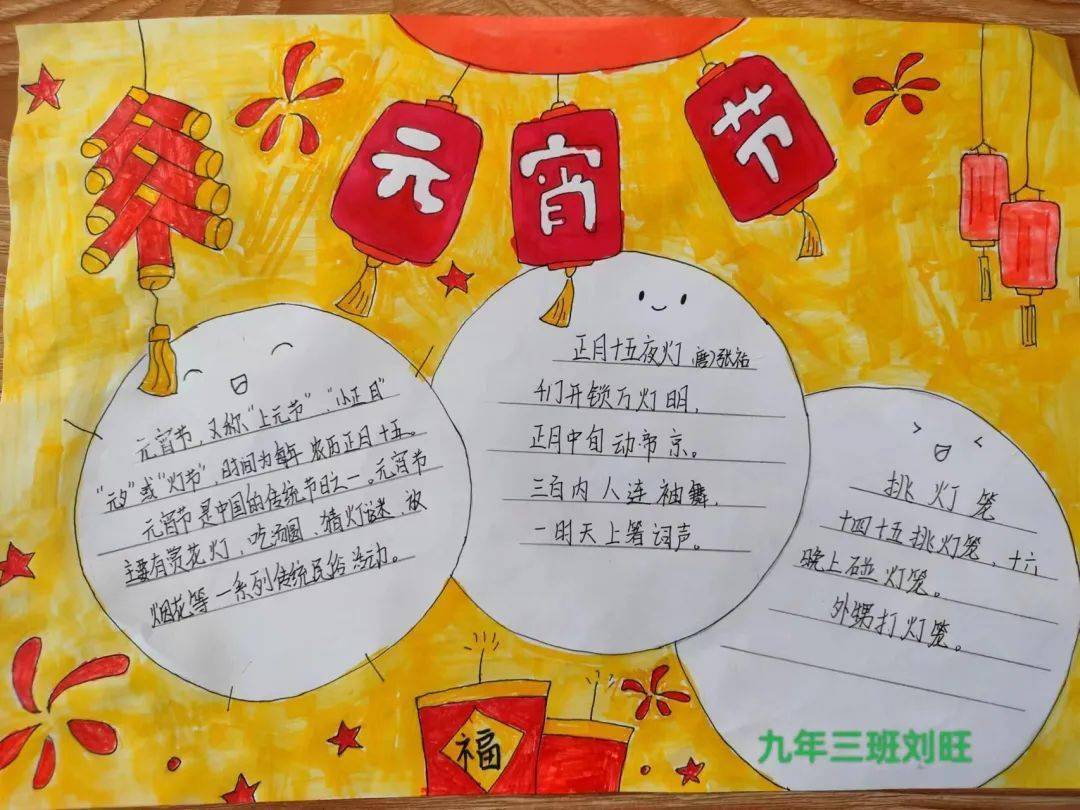 元宵节
元宵节，又称“上元节”、“小正月”
“元夕”或“灯节”，时间为每年农历正月十五。
元宵节是中国的传统节日之一。元宵节
主要有赏花灯，吃汤圆，猜灯谜，放
烟花等一系列传统民俗活动。
正月十五夜灯（唐）张祜
千门开锁万灯明，
正月中旬动帝京。
三百内人连袖舞，
一时天上箸词声。
挑灯笼
十四十五挑灯笼，十六
晚上碰灯笼。
外甥打灯笼。
福
九年三班刘旺